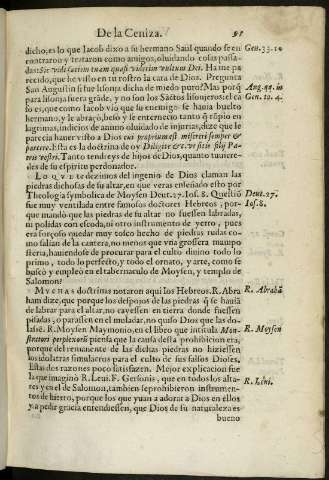 De la Ceniza. 91
dicho, es lo que Iacob dixo a su hermano Saül quando se en
contraron y trataron como amigos, oluidando cosas passa-
das: Sic vidi faciem tuam quasi viderim vultum Dei. Ha me pa-
recido, que he visto en tu rostro la cara de Dios. Pregunta
San Augustin si fue lisonja dicha de miedo puro? Mas porq̃
para lisonja fuera grãde, y no son los Sãctos lisonjeros: el ca
so es, que como Iacob vio que su enemigo se hauia buelto
hermano, y le abraçò, besò y se enternecio tanto q̃ rõpio en
lagrimas, indicios de animo oluidado de injurias, dize que le
parecia hauer visto a Dios cui proprium est misereri semper &
parcere. Esta es la doctrina de oy Diligite &c. vt sitis filij Pa-
tris vestri. Tanto tendreys de hijos de Dios, quanto tuuiere-
des de su espiritu perdonador.
Gen. 33. 10
Aug. qq. in
Gen. 10. 4.
LO QVE dezimos del ingenio de Dios claman las
piedras dichosas de su altar, en que veras enseñado esto por
Theologia symbolica de Moysen Deut. 27. Ios. 8. Questiõ
fue muy ventilada entre famosos doctores Hebreos, por-
que mandò que las piedras de su altar no fuessen labradas,
ni polidas con escoda, ni otro instrumento de yerro, pues
era forçoso quedar muy tosco hecho de piedras rudas co-
mo salian de la cantera, no menos que vna grossera mampo
steria, hauiendose de procurar para el culto diuino todo lo
primo, todo lo perfecto, y todo el ornato, y arte, como se
buscò y empleò en el tabernaculo de Moysen, y templo de
Salomon?
Deut. 27.
Ios. 8.
MVCHAS doctrinas notaron aqui los Hebreos. R. Abra
ham dize, que porque los despojos de las piedras q̃ se hauiã
de labrar para el altar, no cayessen en tierra donde fuessen
pisadas, ò parassen en el muladar, no quiso Dios que las do-
lassẽ. R. Moysen Maymonio, en el libro que intitula Mon-
stratori perplexorũ piensa que la causa dessa prohibicion era,
porque del remanente de las dichas piedras no hiziessen
los idolatras simulacros para el culto de sus falsos Dioles,
Estas dos razones poco satisfazen. Mejor explicacion fue
la que imaginò R. Leui. F. Gersonis, que en todos los alta-
res y en el de Salomon, tambien se prohibieron instrumen-
tos de hierro, porque los que yuan a adorar a Dios en ellos
y a pedir gracia entendiessen, que Dios de su naturaleza es
R. Abrahã
R. Moysen
R. Leui.
bueno